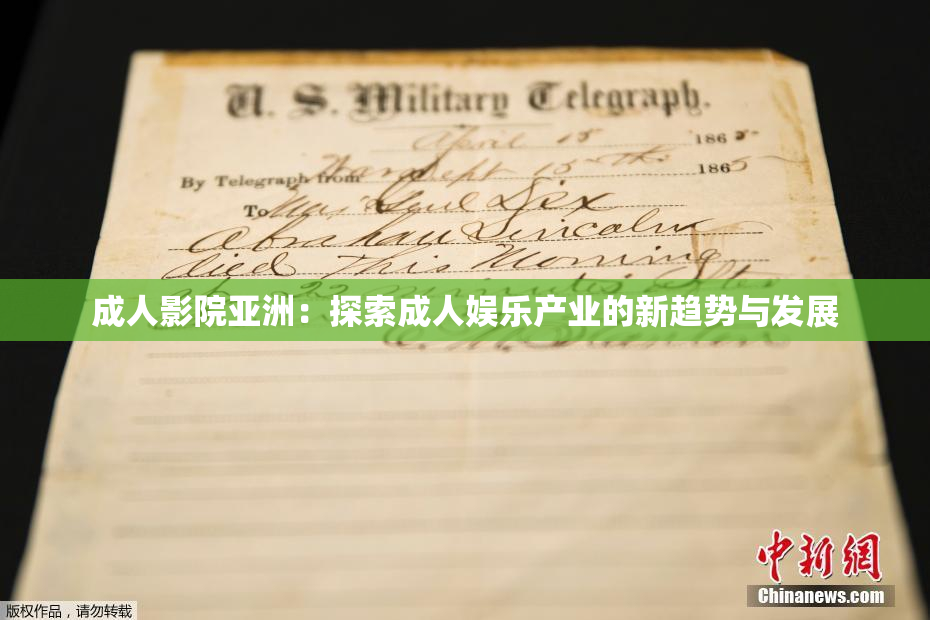 U. S. Military Telegraph.
April 15 1865
By Telegraph from War Dept 15th 1865
To Maj Genl Dix
Abraham Lincoln
died This Morning
22 minutes after
成人影院亚洲：探索成人娱乐产业的新趋势与发展
中新网
Chinanews.com
版权作品，请勿转载